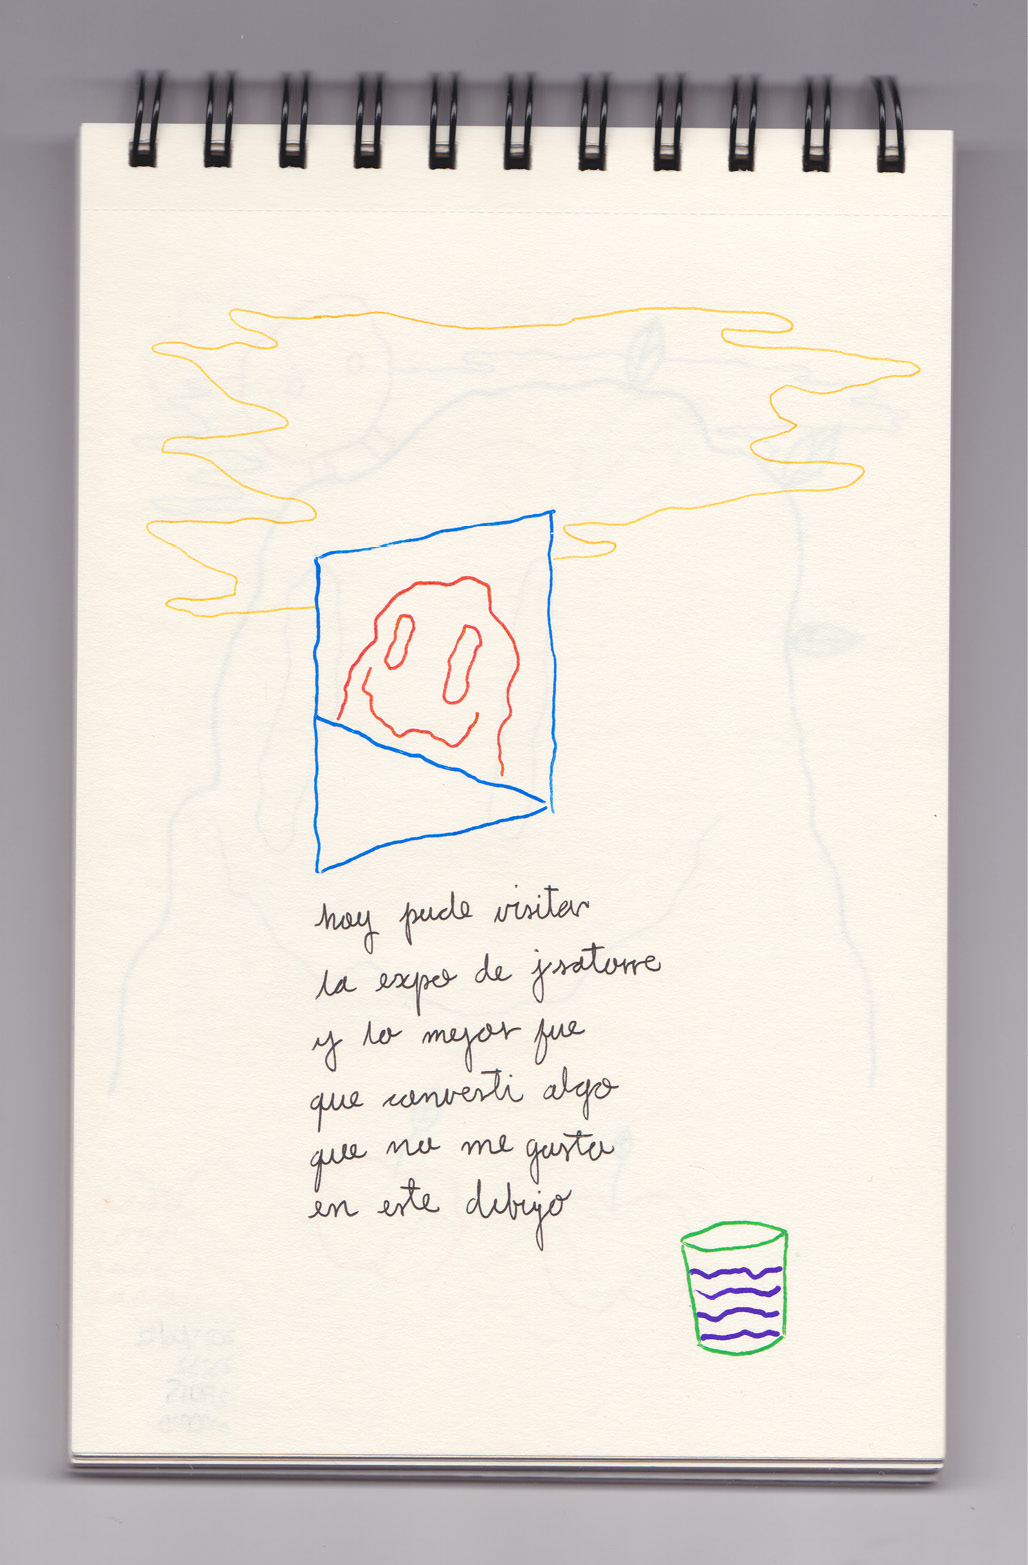 hoy pude visitar
la expo de jsatorre
y lo mejor fue
que convesti algo
que no me gusta
en este dibujo